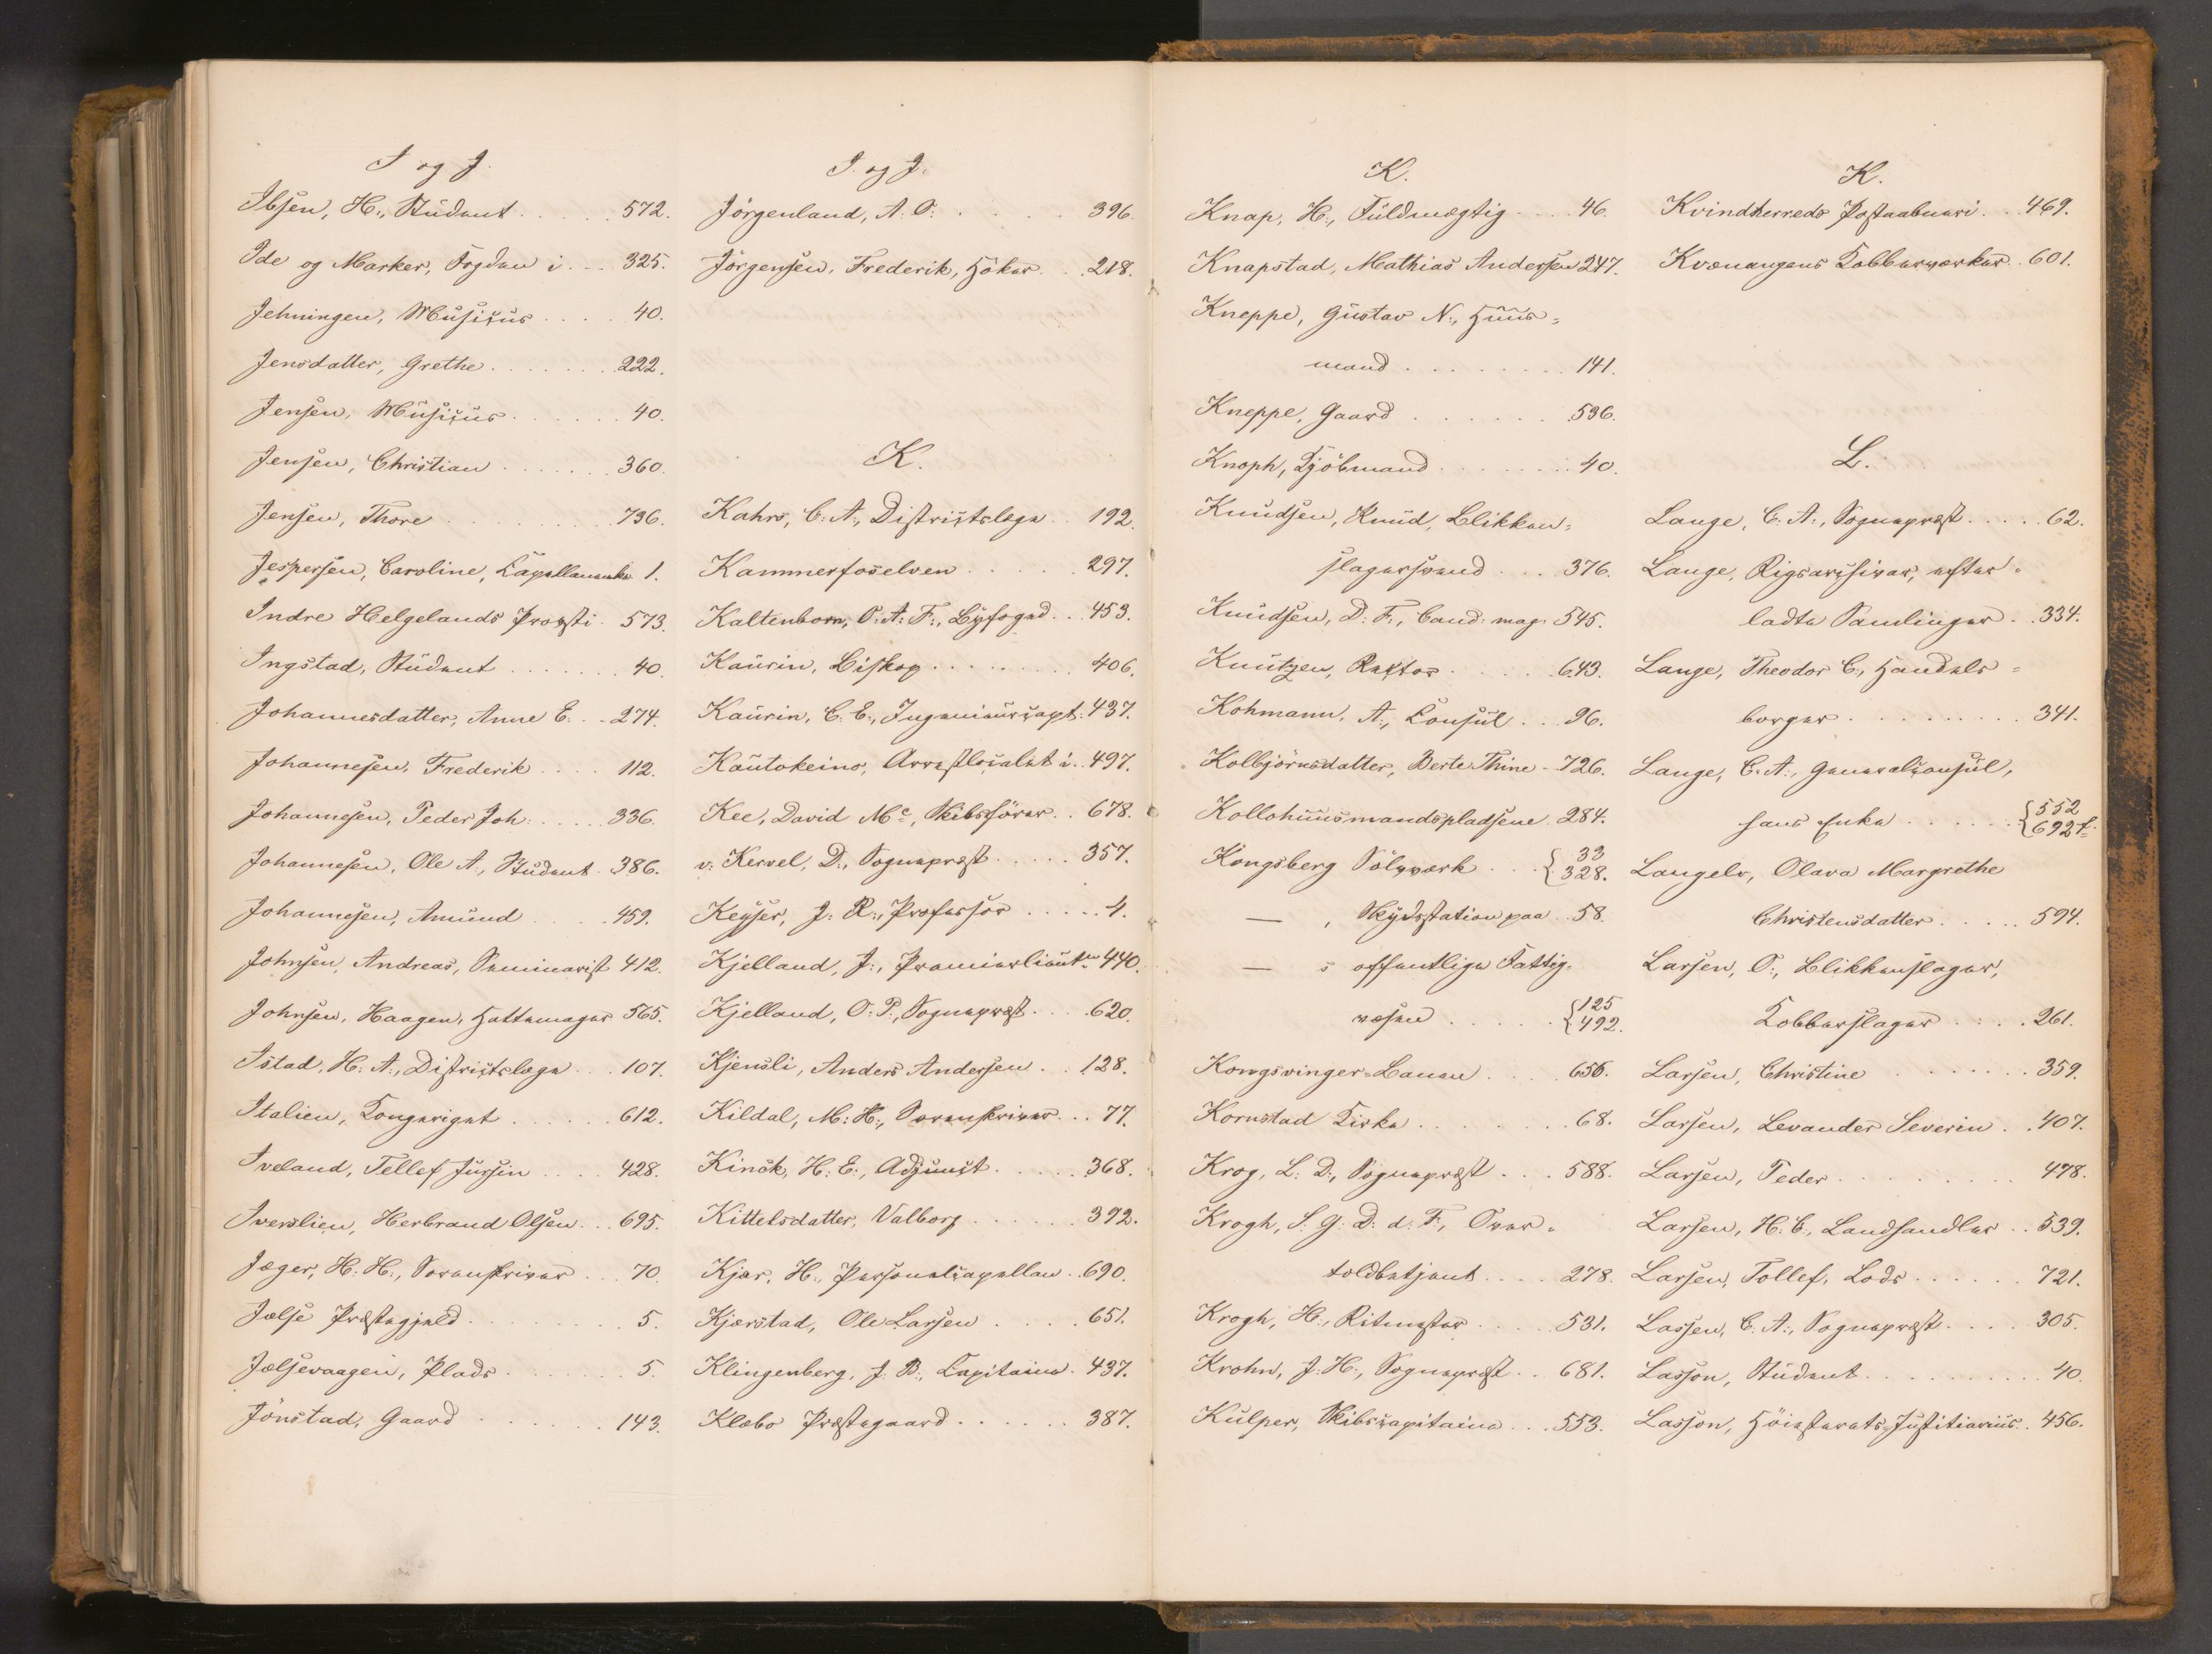 I og J.
Ibsen, H., Student . . . . . 572.
Ide og Marker, Fogden i . . . 325.
Jehningen, Musicus . . . . 40.
Jensdatter, Grethe . . . . . . . 222.
Jensen, Musicus . . . . . . 40.
Jensen, Christian . . . . . . . 360.
Jensen, Thore . . . . . . . 736.
Jespersen, Caroline, Capellanenke 1.
Indre Helgelands Provsti . 573.
Ingstad, Student . . . . . . . 40.
Johannesdatter, Anne E. . . 274.
Johannesen, Frederik . . . . 112.
Johannesen, Peder Joh: . . . . 336.
Johannesen, Ole A., Student . 386.
Johannesen, Amund . . . . 459.
Johnsen, Andreas, Seminarist 412.
Johnsen, Haagen, Hattemager 565.
Istad, H: A., Districtslæge . . . 107.
Italien, Kongeriget . . . . . . 612.
Iveland, Tellef Jursin . . . . 428.
Iverslien, Herbrand Olsen . . . 695.
Jæger, H: H:, Sorenskriver . . . 70.
Jælse Præstegjeld . . . . . . . . 5.
Jælsevaagen, Plads . . . . . . . 5.
Jönstad, Gaard . . . . . . 143.
I. og J.
Jörgenland, A: O: . . . . . 396.
Jörgensen, Frederik, Höker . . . 218.
K.
Kahrs, C: A., Districtslæge . . 192.
Kammerfoselven . . . . . 297.
Kaltenborn, O: A: F:, Byfoged . . 453.
Kaurin, Biskop . . . . . . . . 406.
Kaurin, C. E:, Ingenieurcapt. 437.
Kautokeino, Arrestlocalet i . . 497.
Kee, David Mc, Skibsförer . . 678.
v. Kervel, D:, Sognepræst . . . . . 357.
Keyser, J: R:, Professor . . . . . 4.
Kjelland, J:, Premierlieutn. 440.
Kjelland, O: P., Sognepræst . . . . 620.
Kjensli, Anders Andersen . . 128.
Kildal, M: H:, Sorenskriver . . . 77.
Kinck, H: E:, Adjunct . . . . . 368.
Kittelsdatter, Valborg . . . . . . 392.
Kjær, H:, Personelcapellan . . 690.
Kjærstad, Ole Larsen . . . . 651.
Klingenberg, J. B:, Capitaine . 437.
Klæbo Præstegaard . . . . . . 387.
K.
Knap, H:, Fuldmægtig . . . 46.
Knapstad, Mathias Andersen 247.
Kneppe, Gustav N:, Huus-
mand . . . . . . . . . 141.
Kneppe, Gaard . . . . . . . 536.
Knoph, Kjöbmand . . . . . . . . 40.
Knudsen, Knud, Blikken-
slagersvend . . . 376.
Knudsen, D: F:, Cand. mag. 545.
Knutzen, Rector . . . . . 643.
Kohmann, A., Consul . . . 96.
Kolbjörnsdatter, Berte Thine . 726.
Kollohuusmandspladsene . 284.
Kongsberg Sölvværk . . . { 33
328.
— , Skydsstation paa . . 58.
— s offentlige Fattig-
væsen . . . . . { 125
492.
Kongsvinger-Banen . . . . 656.
Kornstad Kirke . . . . . . . . 68.
Krog, L: D., Sognepræst . . . 588.
Krogh, S. G: D: d: F:, Over-
toldbetjent . . . . 278.
Krogh, H:, Ritmester . . . . 531.
Krohn, J. H:, Sognepræst . . 681.
Kulper, Skibscapitaine . . . 553.
K.
Kvindherreds Postaabneri . . . 469.
Kvænangens Kobberværker . . 601.
L.
Lange, C: A:, Sognepræst . . . . . 62.
Lange, Rigsarchivar, efter-
ladte Samlinger . . 334.
Lange, Theodor C:, Handels-
borger . . . . . . . . . 341.
Lange, C. A:, Generalconsul,
hans Enke . . . . . . { 552
692 f.
Langelv, Olava Margrethe
Christensdatter . . . . . 594.
Larsen, O:, Blikkenslager,
Kobberslager . . . . 261.
Larsen, Christine . . . . . . . 359.
Larsen, Levander Severin . . 407.
Larsen, Peder . . . . . . . . . 478.
Larsen, H. C:, Landhandler . . 539.
Larsen, Tollef, Lods . . . . . . 721.
Lassen, C. A:, Sognepræst . . . . 305.
Lasson, Student . . . . . . . . . . 40.
Lasson, Höiesterets-Justitiarius . 456.